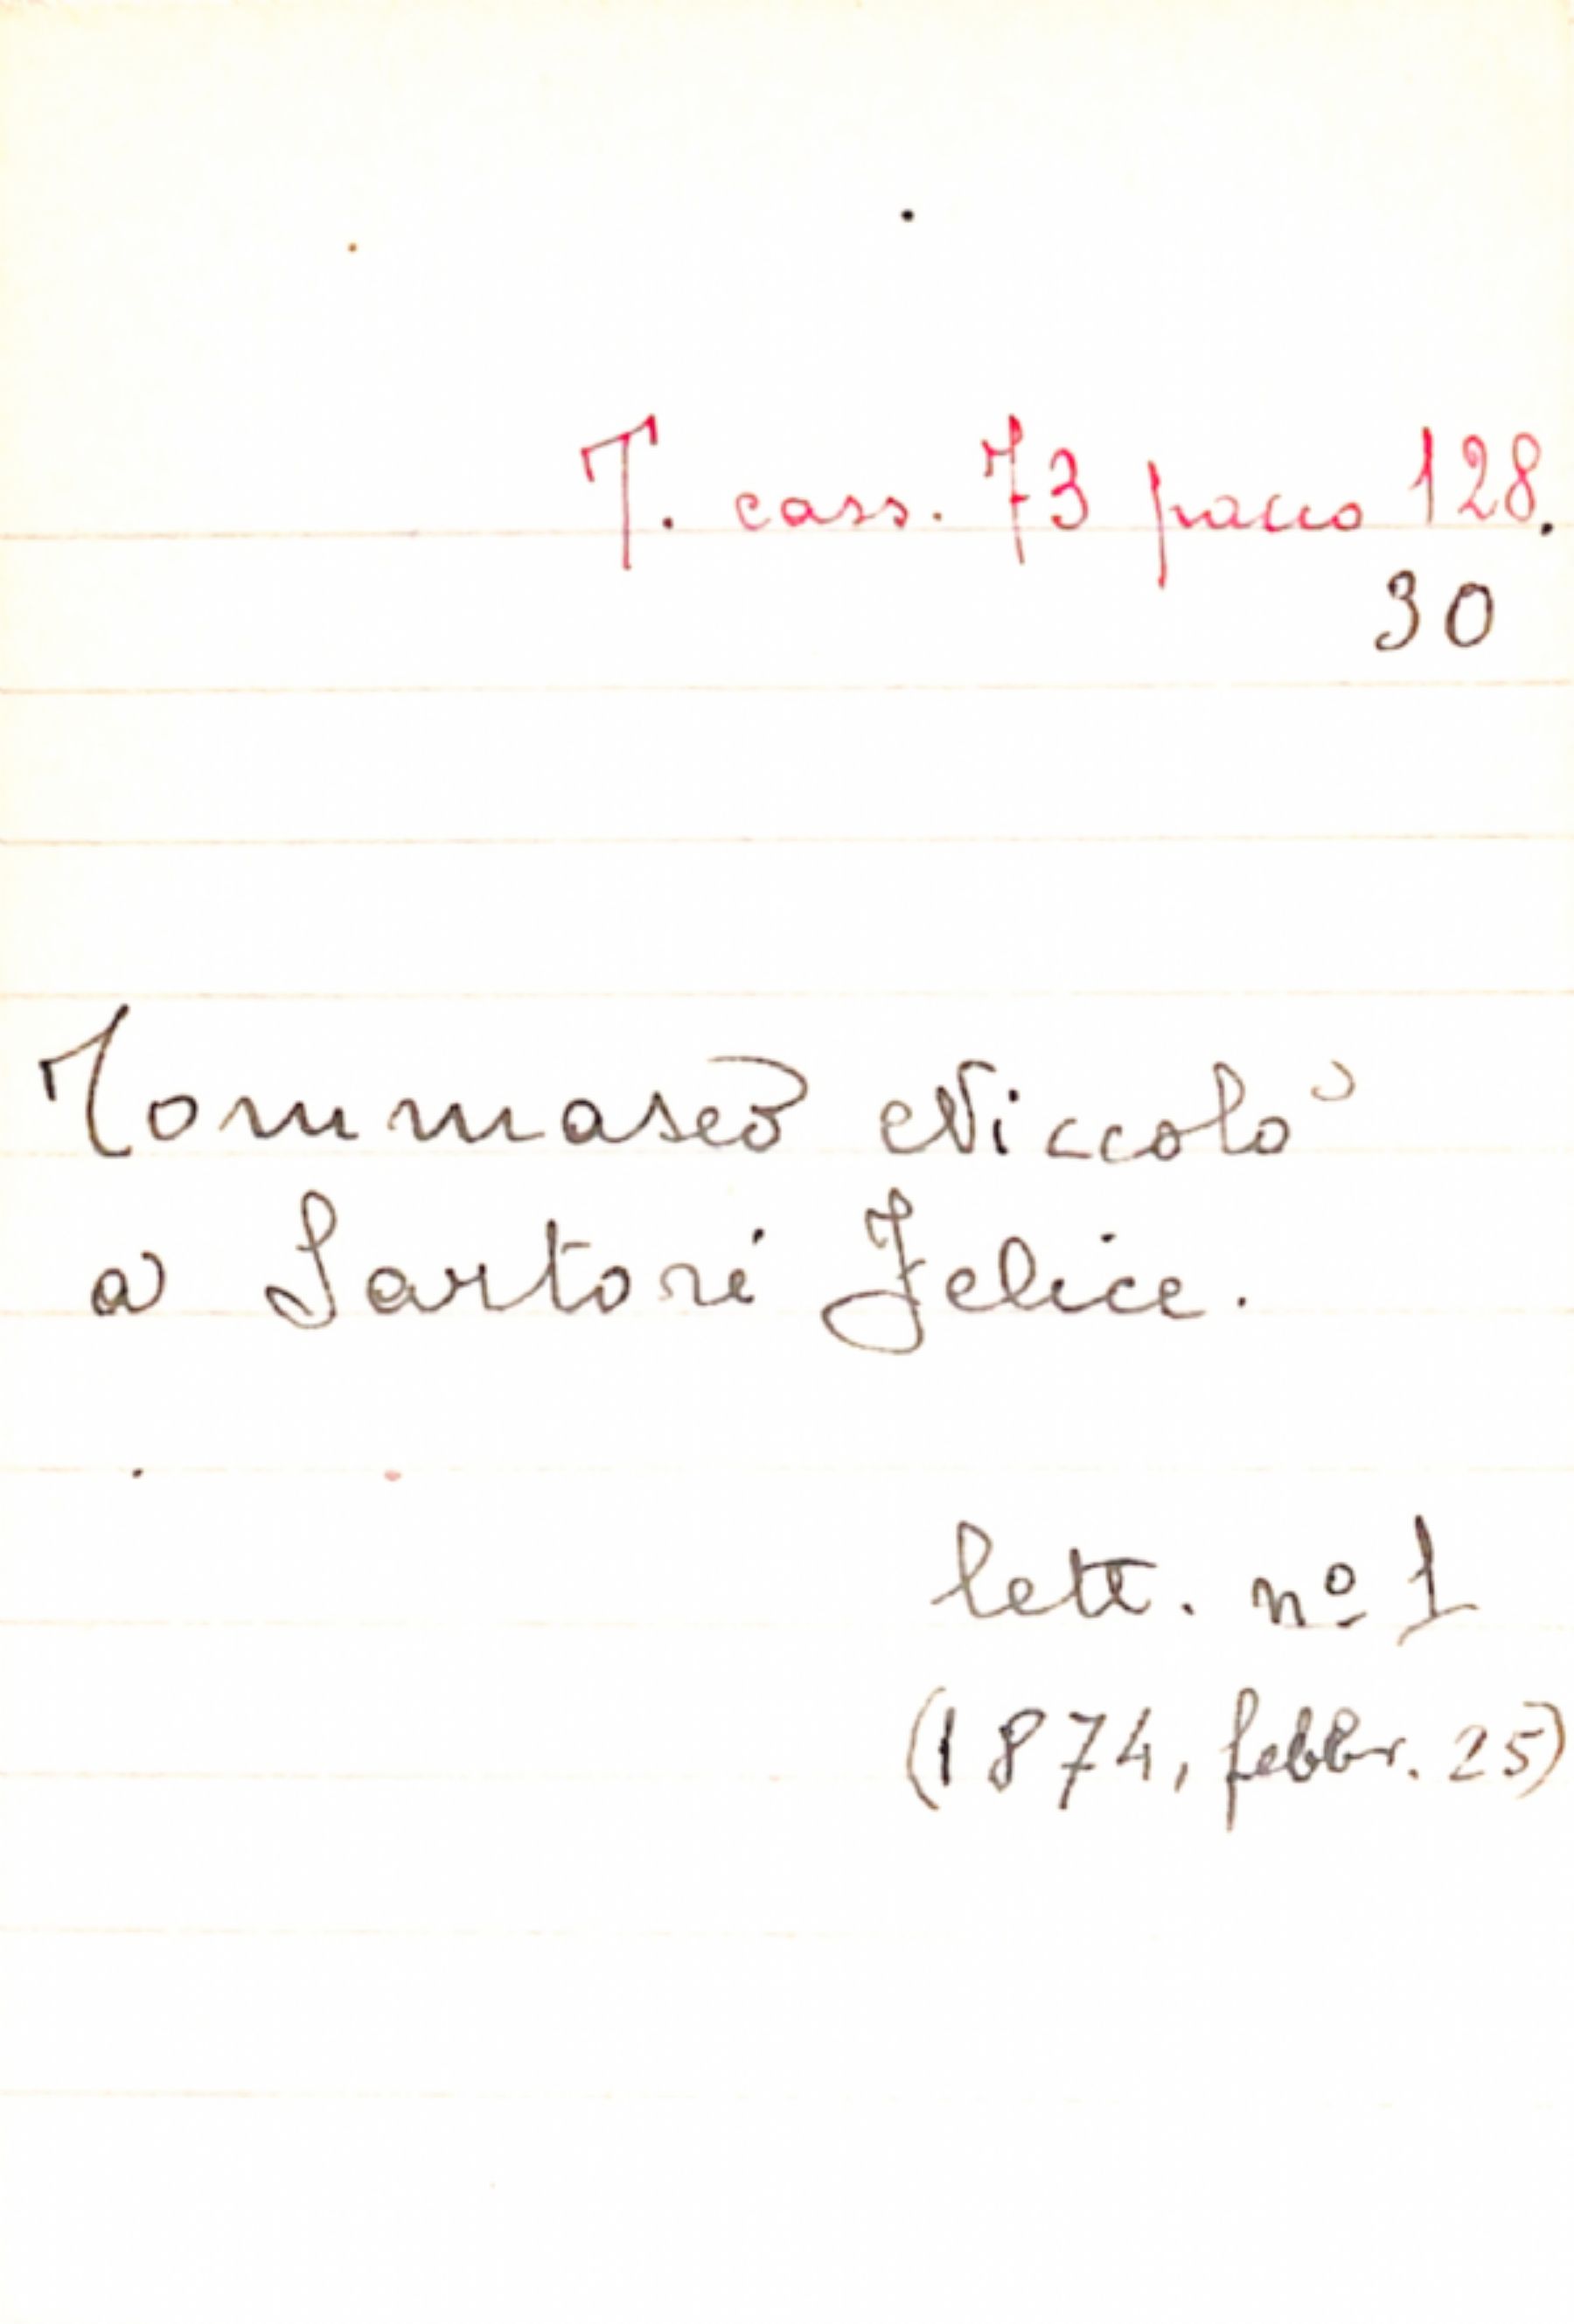 T. cass. 73 pacco 128.
30
Tommaseo Niccolò
a Sartori Felice.
lett. nº 1
(1874, febbr. 25)